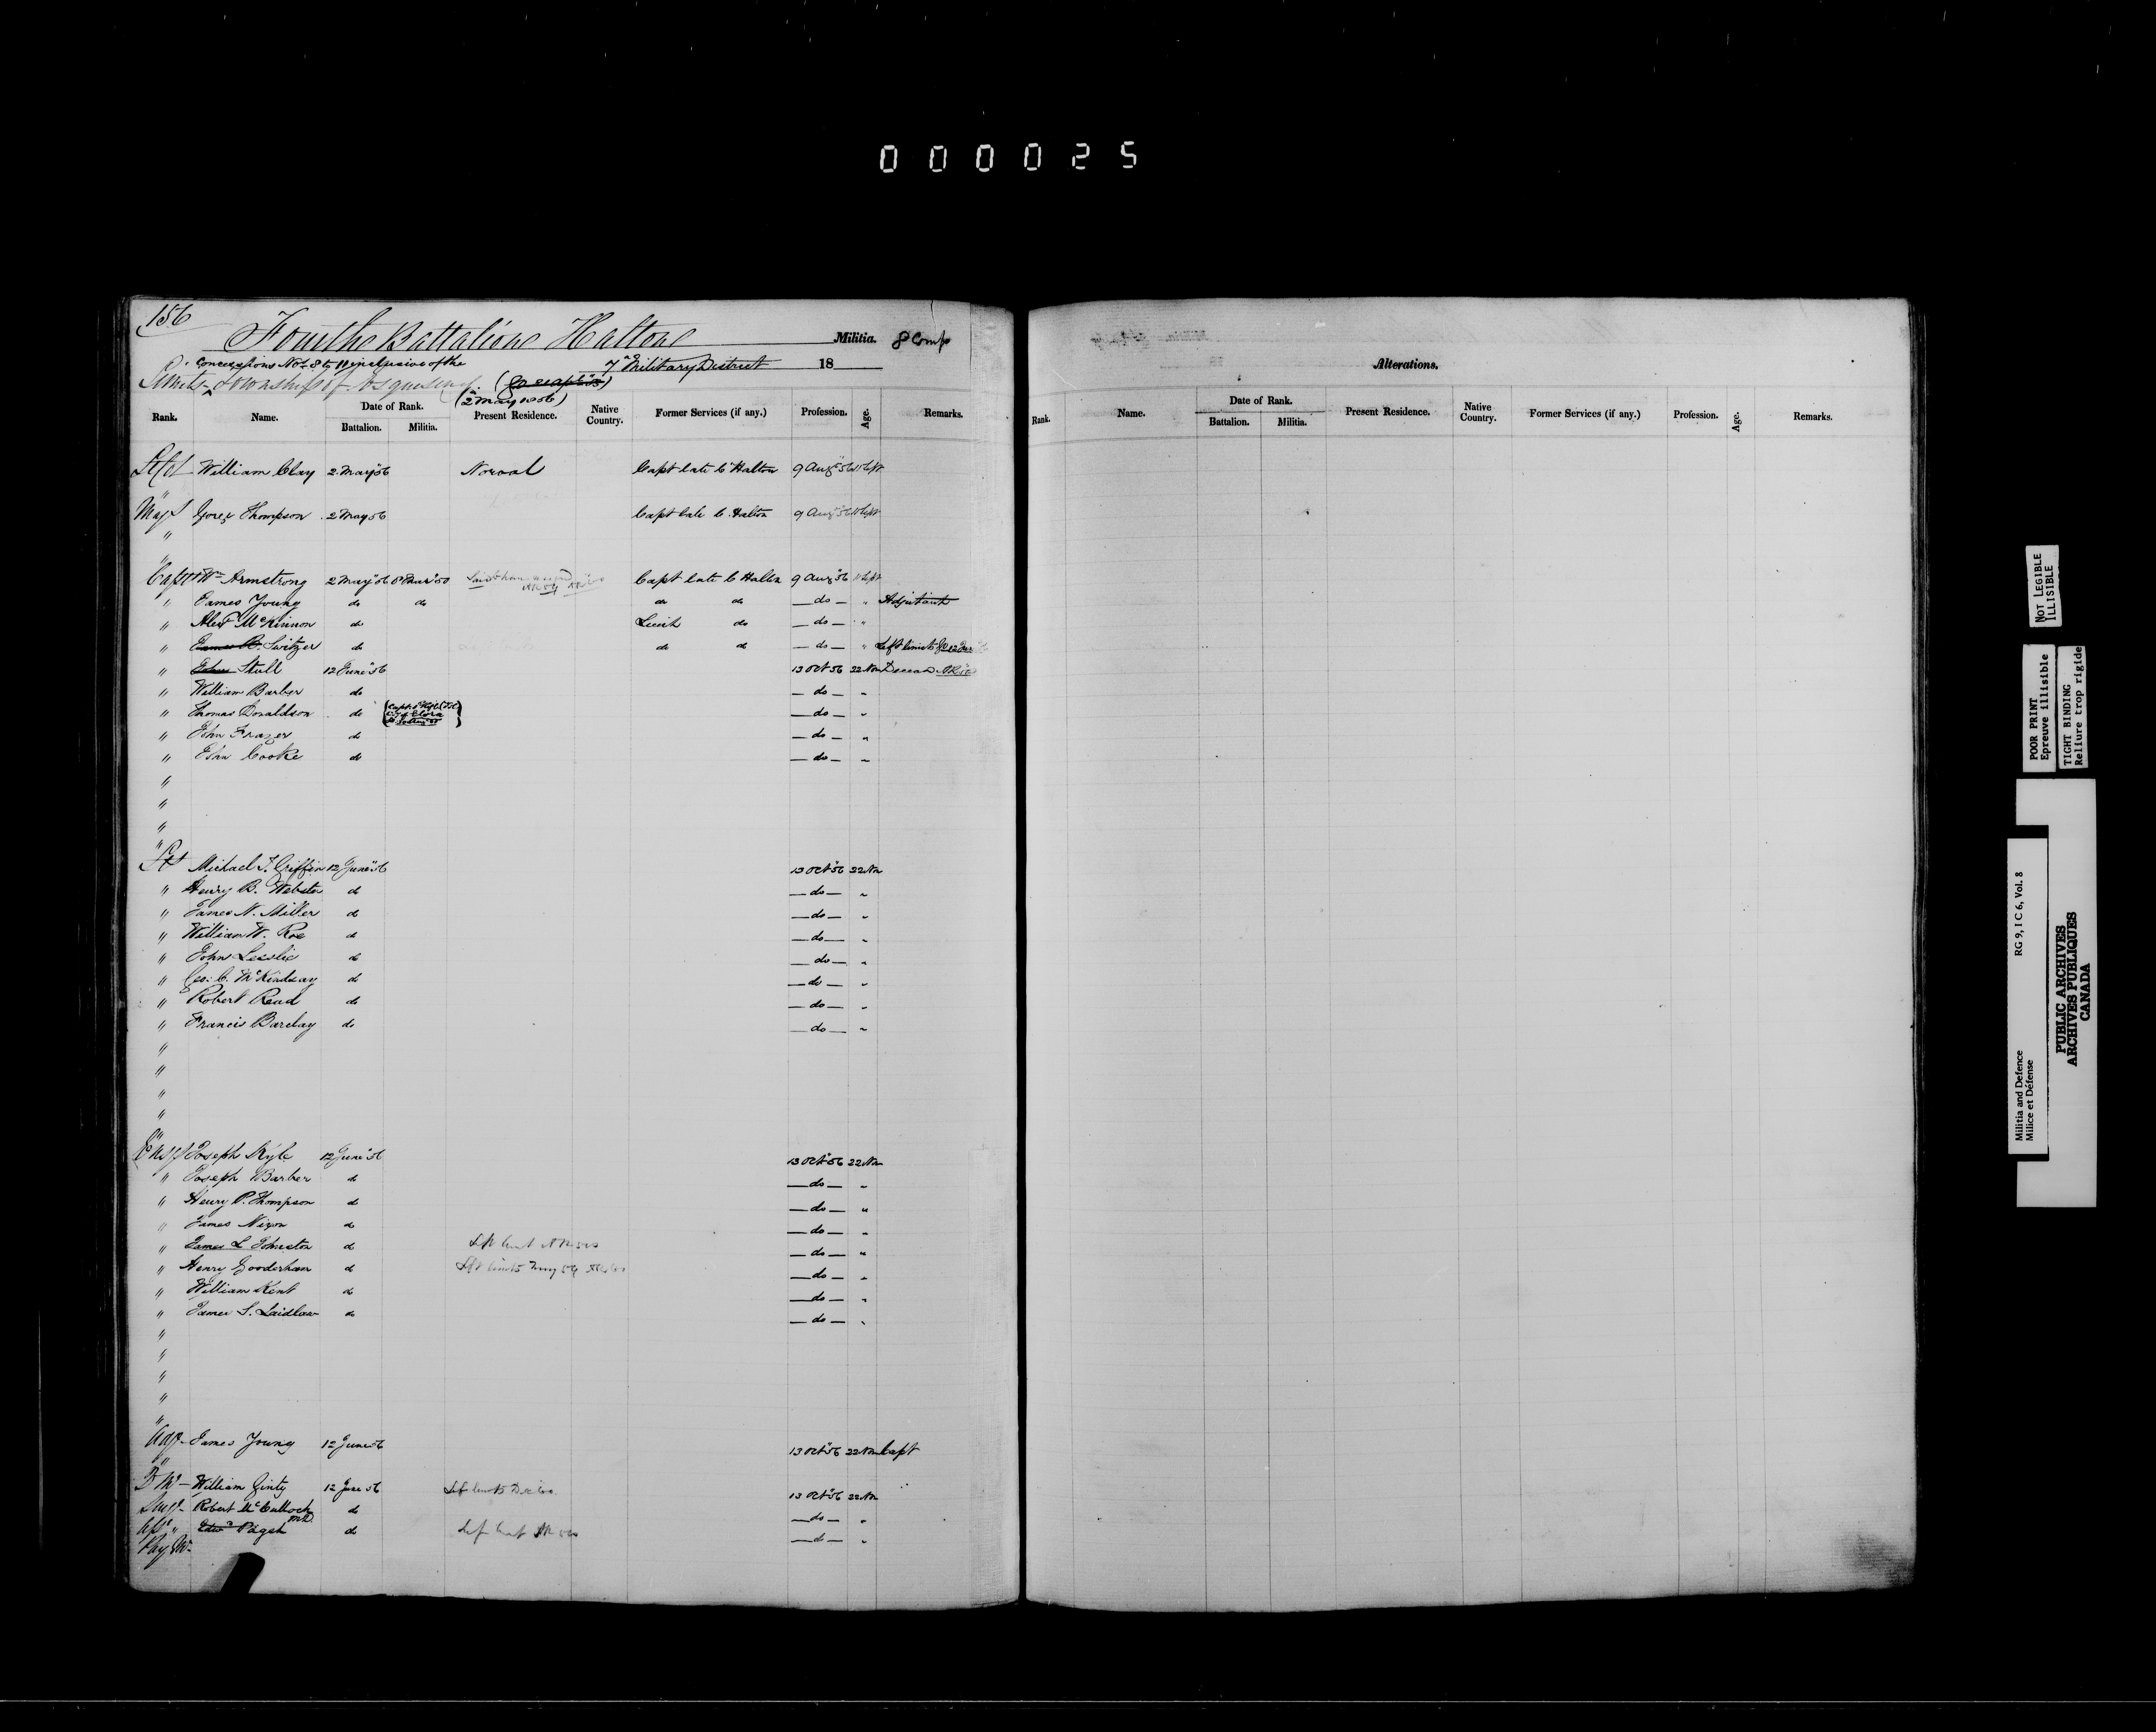 000025
156
Fourth Battalion Halton Militia. 8 Comps
Concessions Nos 8 to 11 inclusive of the 7th Military District 18
Limits Township of Esquesing.
(2 May 1856)
Rank. Name. Date of Rank. Battalion. Militia. Present Residence. Native Country. Former Services (if any.) Profession. Age. Remarks.
Lt Col William Clay 2 May 56 Norval Capt late 6 Halton 9 Aug 56 11 Sept
Maj Thompson 2 May 56 Capt late 6 Halton 9 Aug 56 11 Sept
"
"
Capt Wm Armstrong 2 May 56 Capt late 6 Halton 9 Aug 56 11 Sept
" James Young do do do do do " Adjutant
" Alexr McKinnon do Lieut do do "
" James Switzer do do do do " Left limits
" John Stull 12 June 56 13 Oct 56 22 Nov
" William Barber do do "
" Thomas Donaldson do do "
" John Frazer do do "
" John Cooke do do "
"
"
"
"
Lt Michael Griffin 12 June 56 13 Oct 56 22 Nov
" Henry B. Webster do do "
" James N. Miller do do "
" William W. Roe do do "
" John Lesslie do do "
" Geo. C. McKindsay do do "
" Robert Read do do "
" Francis Barclay do do "
"
"
"
"
"
Ensign Joseph Kyle 12 June 56 13 Oct 56 22 Nov
" Joseph Barber do do "
" Henry P. Thompson do do "
" James Nixon do do "
" James L Johnston do Left limits do "
" Henry Gooderham do Left limits do "
" William Kent do do "
" James S. Laidlaw do do "
"
"
"
"
"
Adjt James Young 12 June 56 13 Oct 56 22 Nov Capt
"
Q M William Ginty 12 June 56 Left limits 13 Oct 56 22 Nov
Surg Robert McCullock MD do do "
" Edwd Paget do do "
Pay Mr
Alterations.
Rank. Name. Date of Rank. Battalion. Militia. Present Residence. Native Country. Former Services (if any.) Profession. Age. Remarks.
NOT LEGIBLE
ILLISIBLE
POOR PRINT
Epreuve illisible
TIGHT BINDING
Reliure trop rigide
Militia and Defence RG 9, I C 6, Vol. 8
Milice et Défense
PUBLIC ARCHIVES
ARCHIVES PUBLIQUES
CANADA